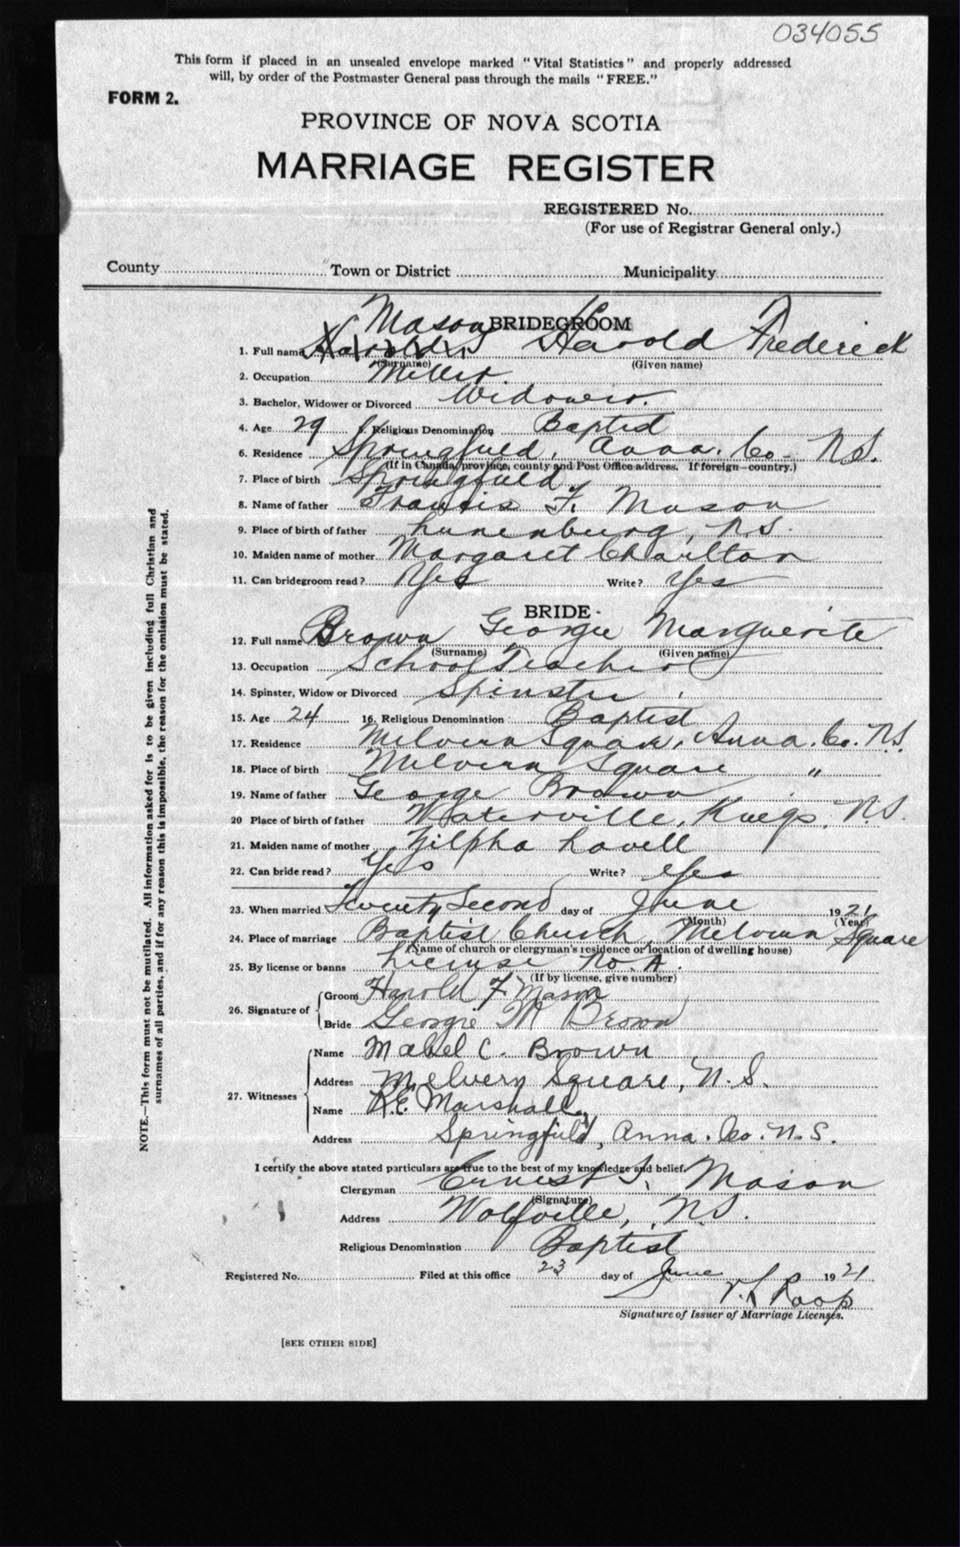 034055
This form if placed in an unsealed envelope marked "Vital Statistics" and properly addressed
will, by order of the Postmaster General pass through the mails "FREE."
FORM 2.
PROVINCE OF NOVA SCOTIA
MARRIAGE REGISTER
REGISTERED No.
(For use of Registrar General only.)
County Town or District Municipality
BRIDEGROOM
1. Full name Mason Harold Frederick
(Surname) (Given name)
2. Occupation Miller.
3. Bachelor, Widower or Divorced Widower.
4. Age 29 5. Religious Denomination Baptist
6. Residence Springfield, Anna. Co. N.S.
(If in Canada, province, county and Post Office address. If foreign—country.)
7. Place of birth Springfield
8. Name of father Francis F. Mason
9. Place of birth of father Lunenburg, N.S.
10. Maiden name of mother Margaret Charlton
11. Can bridegroom read? Yes Write? Yes
BRIDE
12. Full name Brown Georgie Marguerite
(Surname) (Given name)
13. Occupation School Teacher
14. Spinster, Widow or Divorced Spinster
15. Age 24 16. Religious Denomination Baptist
17. Residence Melvern Square, Anna. Co. N.S.
18. Place of birth Melvern Square "
19. Name of father George Brown
20 Place of birth of father Waterville, Kings, N.S.
21. Maiden name of mother Zilpha Lovell
22. Can bride read? Yes Write? Yes
23. When married Twenty Second day of June 1921
(Month) (Year)
24. Place of marriage Baptist Church, Melvern Square
(Name of church or clergyman's residence or location of dwelling house)
25. By license or banns License No. A.
(If by license, give number)
26. Signature of
Groom Harold F Mason
Bride Georgie M Brown
27. Witnesses
Name Mabel C. Brown
Address Melvern Square, N.S.
Name R.E. Marshall,
Address Springfield, Anna. Co. N.S.
I certify the above stated particulars are true to the best of my knowledge and belief.
Clergyman Ernest S. Mason
(Signature)
Address Wolfville, N.S.
Religious Denomination Baptist
Registered No. Filed at this office 23 day of June 1921
Roop
Signature of Issuer of Marriage Licenses.
[SEE OTHER SIDE]
NOTE.—This form must not be mutilated. All information asked for is to be given including full Christian and
surnames of all parties, and if for any reason this is impossible, the reason for the omission must be stated.